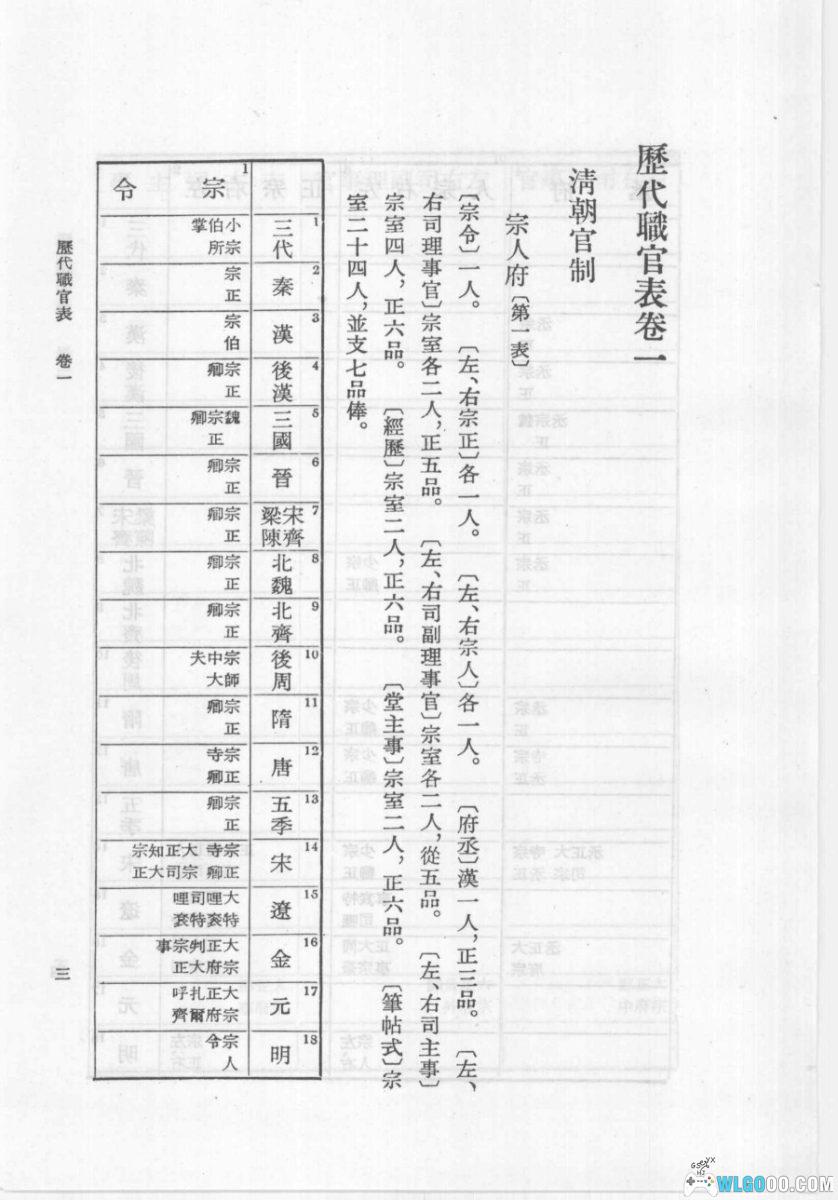 歷代職官表卷一
淸朝官制
宗人府〔第一表〕
〔宗令〕一人。〔左、右宗正〕各一人。〔左、右宗人〕各一人。〔府丞〕漢一人，正三品。〔左、
右司理事官〕宗室各二人，正五品。〔左、右司副理事官〕宗室各二人，從五品。〔左、右司主事〕
宗室四人，正六品。〔經歷〕宗室二人，正六品。〔堂主事〕宗室二人，正六品。〔筆帖式〕宗
室二十四人，並支七品俸。
1 宗令
1 三代 小宗伯所掌
2 秦 宗正
3 漢 宗伯
4 後漢 宗正卿
5 三國 魏宗正卿
6 晉 宗正卿
7 宋齊梁陳 宗正卿
8 北魏 宗正卿
9 北齊 宗正卿
10 後周 宗師中大夫
11 隋 宗正卿
12 唐 宗正寺卿
13 五季 宗正卿
14 宋 宗正寺卿 大宗正司知大宗正
15 遼 大特哩袞司特哩袞
16 金 大宗正府判大宗正事
17 元 大宗正府扎爾呼齊
18 明 宗人令
歷代職官表 卷一
三
WLGOOO.COM